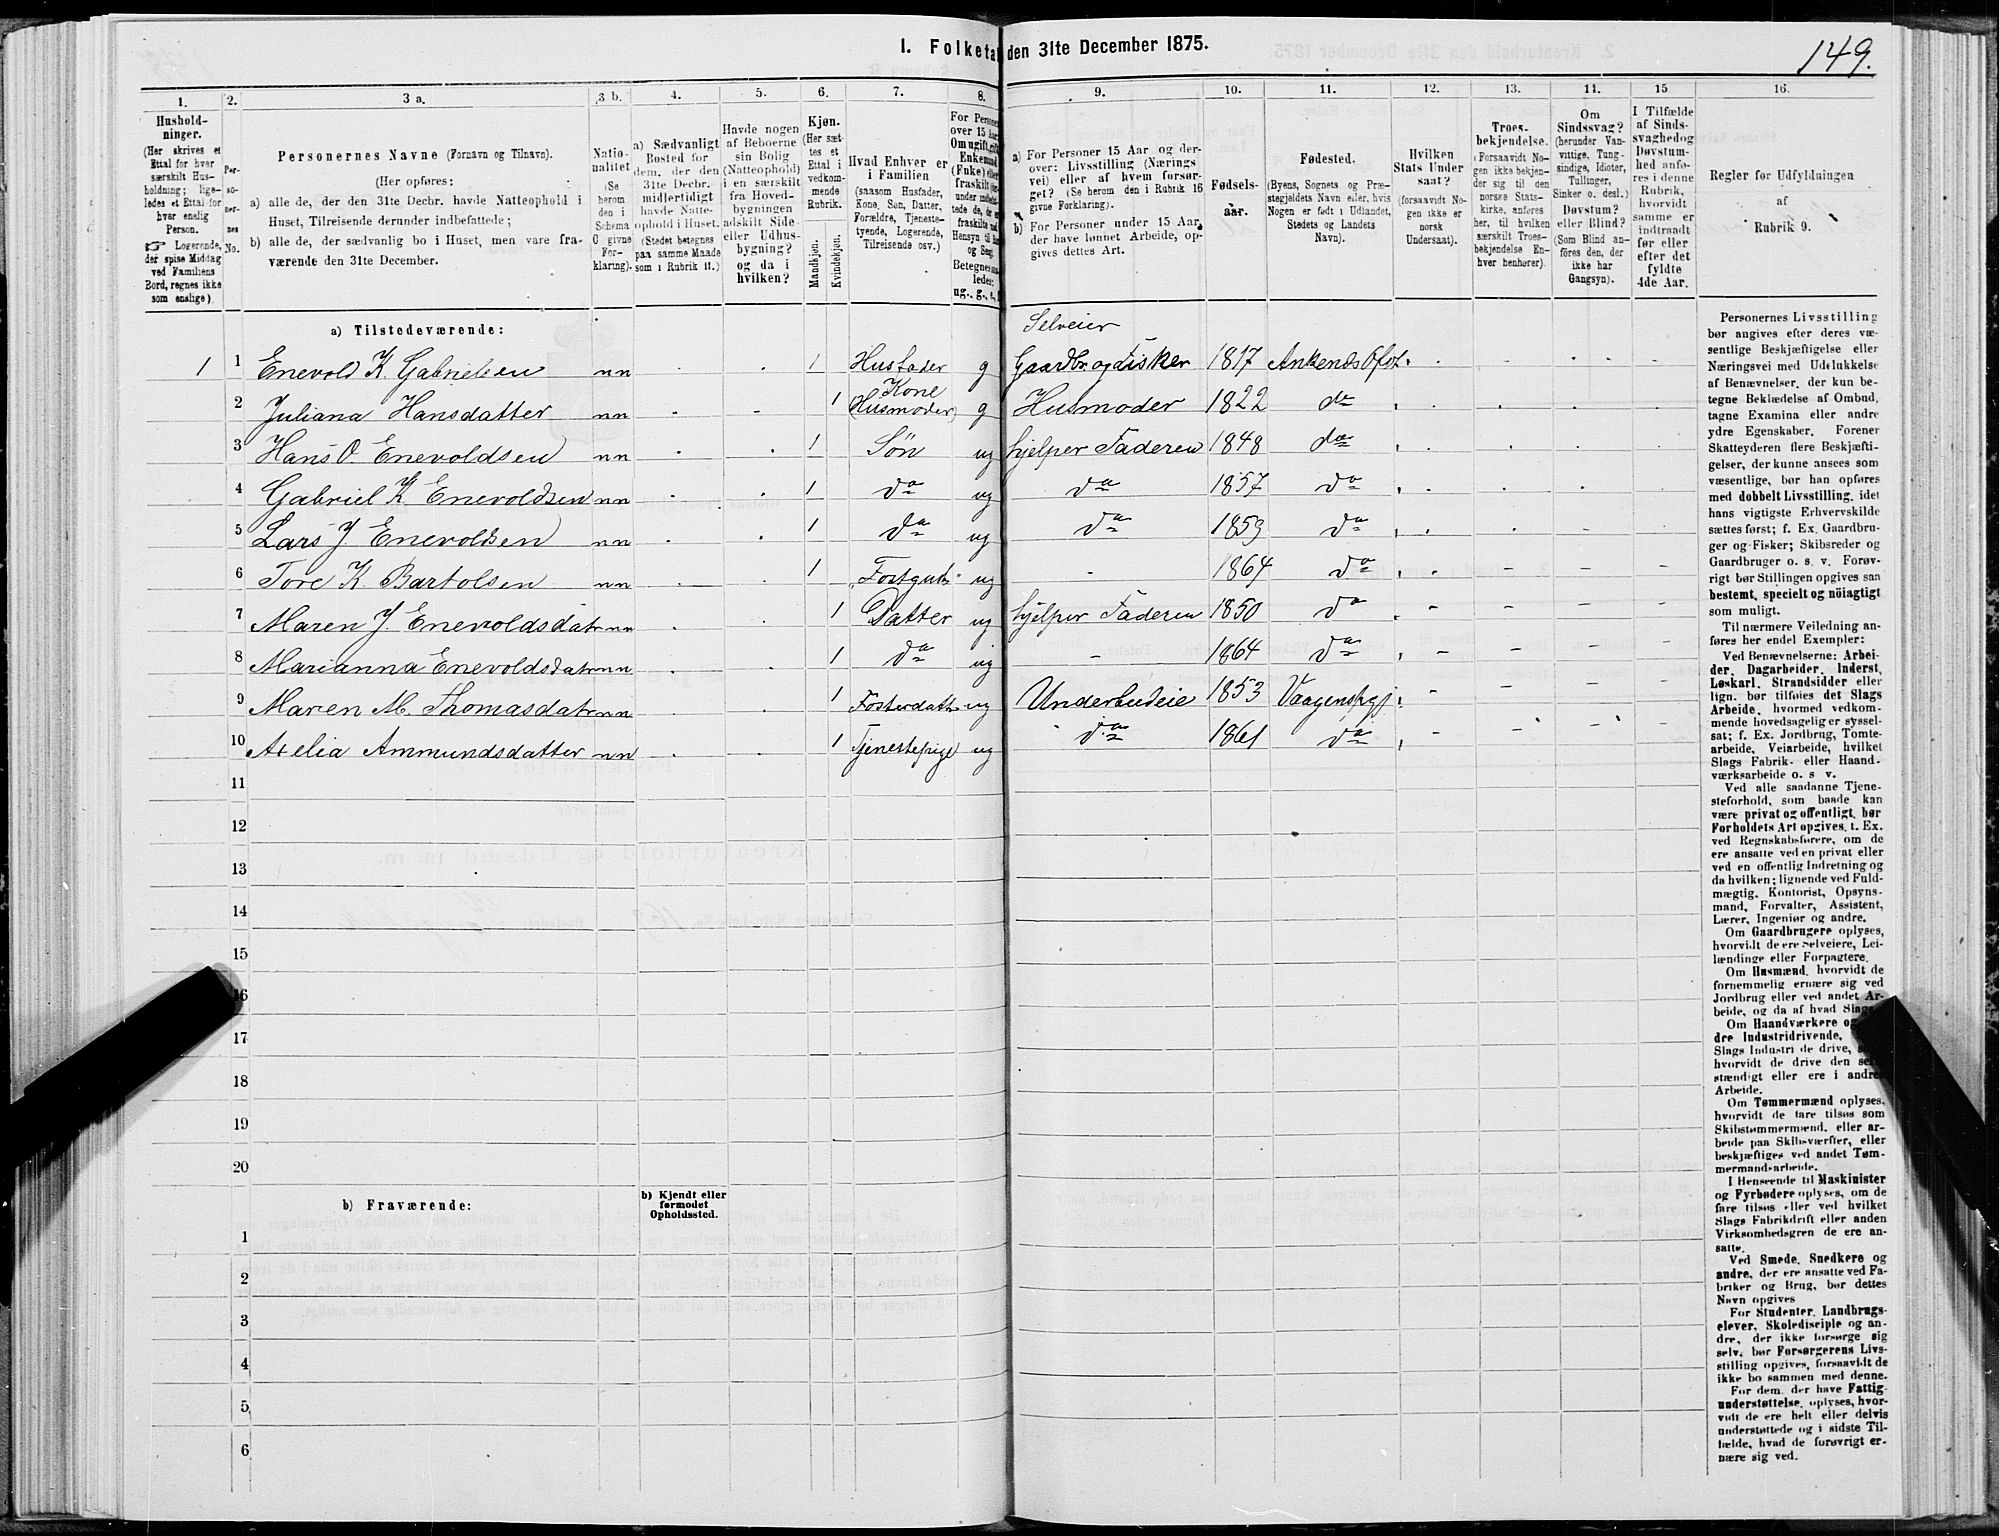 I. Folketa den 31te December 1875.
149.
1. 2. 3 a. 3 b. 4. 5. 6. 7. 8. 9. 10. 11. 12. 13. 14. 15 16.
Hushold-
ninger.
(Her skrives et
Ettal for hver
særskilt Hus-
holdning; lige-
ledes et Ettal for
hver enslig
Person.
☞ Logerende,
der spise Middag
ved Familiens
Bord, regnes ikke
som enslige).
Per-
so-
ner-
nes
No.
Personernes Navne (Fornavn og Tilnavn).
(Her opføres:
a) alle de, der den 31te Decbr. havde Natteophold i
Huset, Tilreisende derunder indbefattede;
b) alle de, der sædvanlig bo i Huset, men vare fra-
værende den 31te December.
Natio-
nalitet
(Se
herom
den i
Schema
C givne
For-
klaring).
a) Sædvanligt
Bosted for
dem, der den
31te Decbr.
midlertidigt
havde Natte-
ophold i Huset.
(Stedet betegnes
paa samme Maade
som i Rubrik 11.)
Havde nogen
af Beboerne
sin Bolig
(Natteophold)
i en særskilt
fra Hoved-
bygningen
adskilt Side-
eller Udhus-
bygning?
og da i
hvilken?
Kjøn.
(Her sæt-
tes et
Ettal i
vedkom-
mende
Rubrik.
Mandkjøn.
Kvindekjøn.
Hvad Enhver er
i Familien
(saasom Husfader,
Kone, Søn, Datter,
Forældre, Tjeneste-
tyende, Logerende,
Tilreisende osv.)
For Persone
over 15 Aar
Om ugift, gift,
Enkemand
(Enke) eller
fraskilt
Hensyn til
og Seng.
Betegnes
ledes:
ug., g., e.,
a) For Personer 15 Aar og der-
over: Livsstilling (Nærings
vei) eller af hvem forsør-
get? (Se herom den i Rubrik 16
givne Forklaring).
b) For Personer under 15 Aar,
der have lønnet Arbeide, op-
gives dettes Art.
Fødsels-
aar.
Fødested.
(Byens, Sognets og Præ-
stegjeldets Navn eller, hvis
Nogen er født i Udlandet,
Stedets og Landets
Navn).
Hvilken
Stats Under
saat?
(forsaavidt No-
gen ikke er
norsk
Undersaat).
Troes-
bekjendelse.
(Forsaavidt No-
gen ikke bekjen-
der sig til den
norske Stats-
kirke, anføres
her, til hvilken
særskilt Troes-
bekjendelse En-
hver henhører).
Om
Sindssvag?
(herunder Van-
vittige, Tung-
sindige, Idioter,
Tullinger,
Sinker o. desl.)
Døvstum?
eller Blind?
(Som Blind an-
føres den, der
ikke har
Gangsyn).
I Tilfælde
af Sinds-
svaghed og
Døvstum-
hed anfø-
res i denne
Rubrik,
hvorvidt
samme er
indtraadt
før eller
efter det
fyldte
4de Aar.
Regler for Udfyldningen
af
Rubrik 9.
a) Tilstedeværende:
Selveier
1 1 Enevold K. Gabrielsen nn 1 Husfader g Gaardbr og Fisker 1817 Ankenæs Ofot.
2 Juliana Hansdatter nn 1 Kone (Husmoder) g Husmoder 1822 do
3 Hans O. Enevoldsen nn 1 Søn ug hjelper Faderen 1848 do
4 Gabriel K Enevoldsen nn 1 do ug do 1857 do
5 Lars J Enevoldsen nn 1 do ug do 1859 do
6 Tore K. Bartolsen nn 1 Fostgut ug - 1864 do
7 Maren J. Enevoldsdatr nn 1 Datter ug hjelper Faderen 1850 do
8 Marianna Enevoldsdatr nn 1 do ug - 1864 do
9 Maren M. Thomasdatr nn 1 Fosterdatt ug Underbudeie 1853 Vaagenspgj
10 Ammundsdatter nn 1 Tjenestepige ug do 1861 do
11
12
13
14
15
16
17
18
19
20
b) Fraværende:
b) Kjendt eller
formodet
Opholdssted.
1
2
3
4
5
6
Personernes Livsstilling
bør angives efter deres væ-
sentlige Beskjæftigelse eller
Næringsvei med Udelukkelse
af Benævnelser, der kun be-
tegne Beklædelse af Ombud,
tagne Examina eller andre
ydre Egenskaber. Forener
Skatteyderen flere Beskjæfti-
gelser, der kunne ansees som
væsentlige, bør han opføres
med dobbelt Livsstilling, idet
hans vigtigste Erhvervskilde
sættes først; f. Ex. Gaardbru-
ger og Fisker; Skibsreder og
Gaardbruger o. s. v. Forøv-
rigt bør Stillingen opgives saa
bestemt, specielt og nöiagtigt
som muligt.
Til nærmere Veiledning an-
føres her endel Exempler:
Ved Benævnelserne: Arbei-
der, Dagarbeider, Inderst,
Løskarl, Strandsidder eller
lign. bør tilføies det Slags
Arbeide, hvormed vedkom-
mende hovedsagelig er syssel-
sat; f. Ex. Jordbrug, Tomte-
arbeide, Veiarbeide, hvilket
Slags Fabrik- eller Haand-
værksarbeide o. s v.
Ved alle saadanne Tjene-
steforhold, som baade kan
være privat og offentligt, bør
Forholdets Art opgives, t. Ex.
ved Regnskabsførere, om de
ere ansatte ved en privat eller
ved en offentlig Indretning og
da hvilken; lignende ved Fuld-
mægtig, Kontorist, Opsyns-
mand, Forvalter, Assistent,
Lærer, Ingeniør og andre.
Om Gaardbrugere oplyses,
hvorvidt de ere Selveiere, Lei-
lændinge eller Forpagtere.
Om Husmænd, hvorvidt de
fornemmelig ernære sig ved
Jordbrug eller ved andet Ar-
beide, og da af hvad Slags.
Om Haandværkere og
dre Industridrivende,
Slags Industri de drive,
hvorvidt de drive den sel
stændigt eller ere i andre
Arbeide.
Om Tømmermænd oplyses,
hvorvidt de fare tilsøs som
Skibstømmermænd, eller ar-
beide paa Skibsværfter, eller
beskjæftiges ved andet Tøm-
mermandsarbeide.
I Henseende til Maskinister
og Fyrbødere oplyses, om de
fare tilsøs eller ved hvilket
Slags Fabrikdrift eller anden
Virksomhedsgren de ere an-
satte.
Ved Smede, Snedkere og
andre, der ere ansatte ved Fa-
briker og Brug, bør dettes
Navn opgives
For Studenter, Landbrugs-
elever, Skoledisciple og an-
dre, der ikke forsørge sig
selv, bør Forsørgerens Livs-
stilling opgives, forsaavidt de
ikke bo sammen med denne.
For dem, der have Fattig-
understøttelse, oplyses, hvor-
vidt de ere helt eller delvis
understøttede og i sidste Til-
fælde, hvad de forøvrigt er-
nære sig ved.